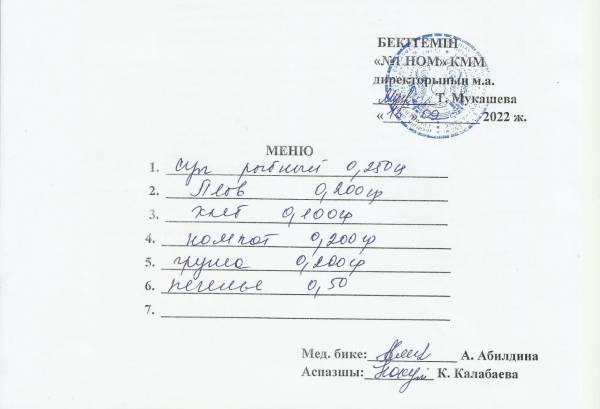 БЕКІТЕМІН
«№1 НОМ» КММ
директорының м.а.
Т. Мукашева
« 16 » 09 2022 ж.
МЕНЮ
1. Суп рыбный 0,250гр
2. Плов 0,200гр
3. хлеб 0,100гр
4. компот 0,200гр
5. груша 0,200гр
6. печенье 0,50
7.
Мед. бике: А. Абилдина
Аспазшы: К. Калабаева